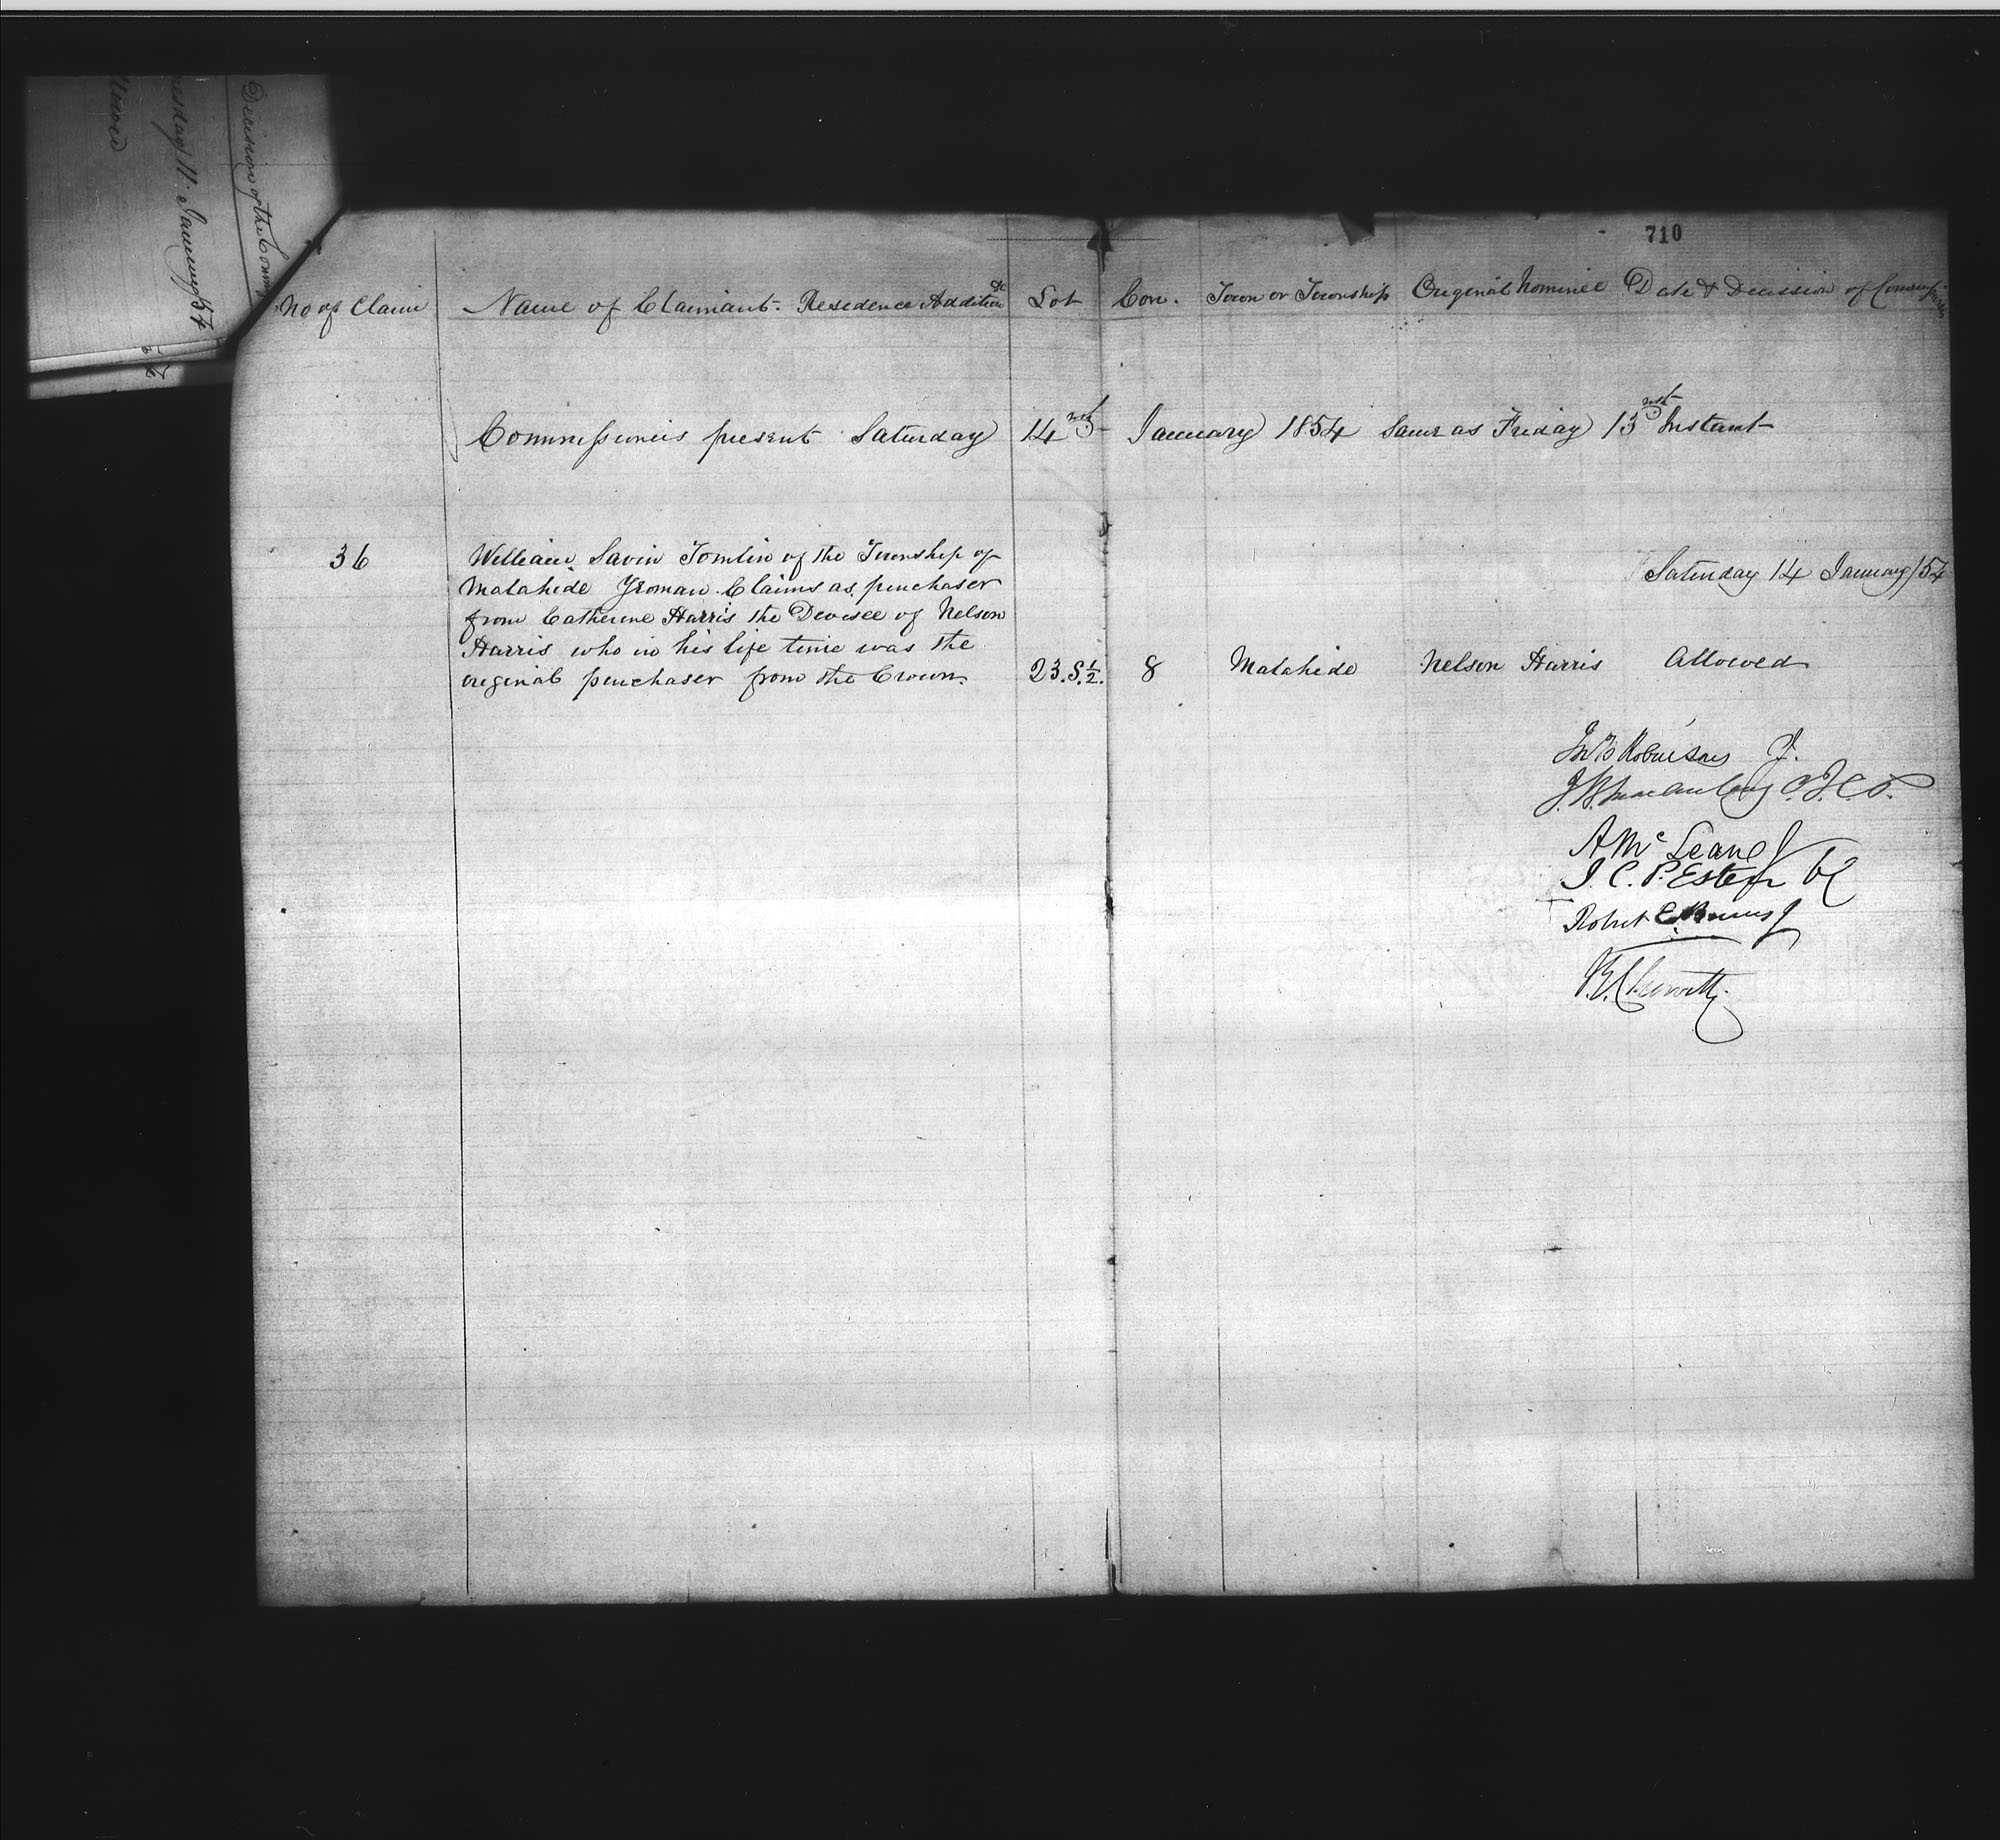 Decision of the Comm
nesday 11. January 54
llowed
710
No of Claim Name of Claimant. Residence Addition &c Lot Con. Town or Township Original Nominee Date & Decission of Commissioners
Commissioners present Saturday 14 January 1854 Same as Friday 13 Instant
36
William Savin Tomlin of the Township of
Malahide Yeoman. Claims as purchaser
from Catherine Harris the Devisee of Nelson
Harris who in his life time was the
original purchaser from the Crown.
Saturday 14 January/54
23. S. ½. 8 Malahide Nelson Harris Allowed
Jno B Robinson J.
J. B. Macaulay C.J.C.P.
A McLean J
J. C. P. Esten VC
Robert E. Burns J